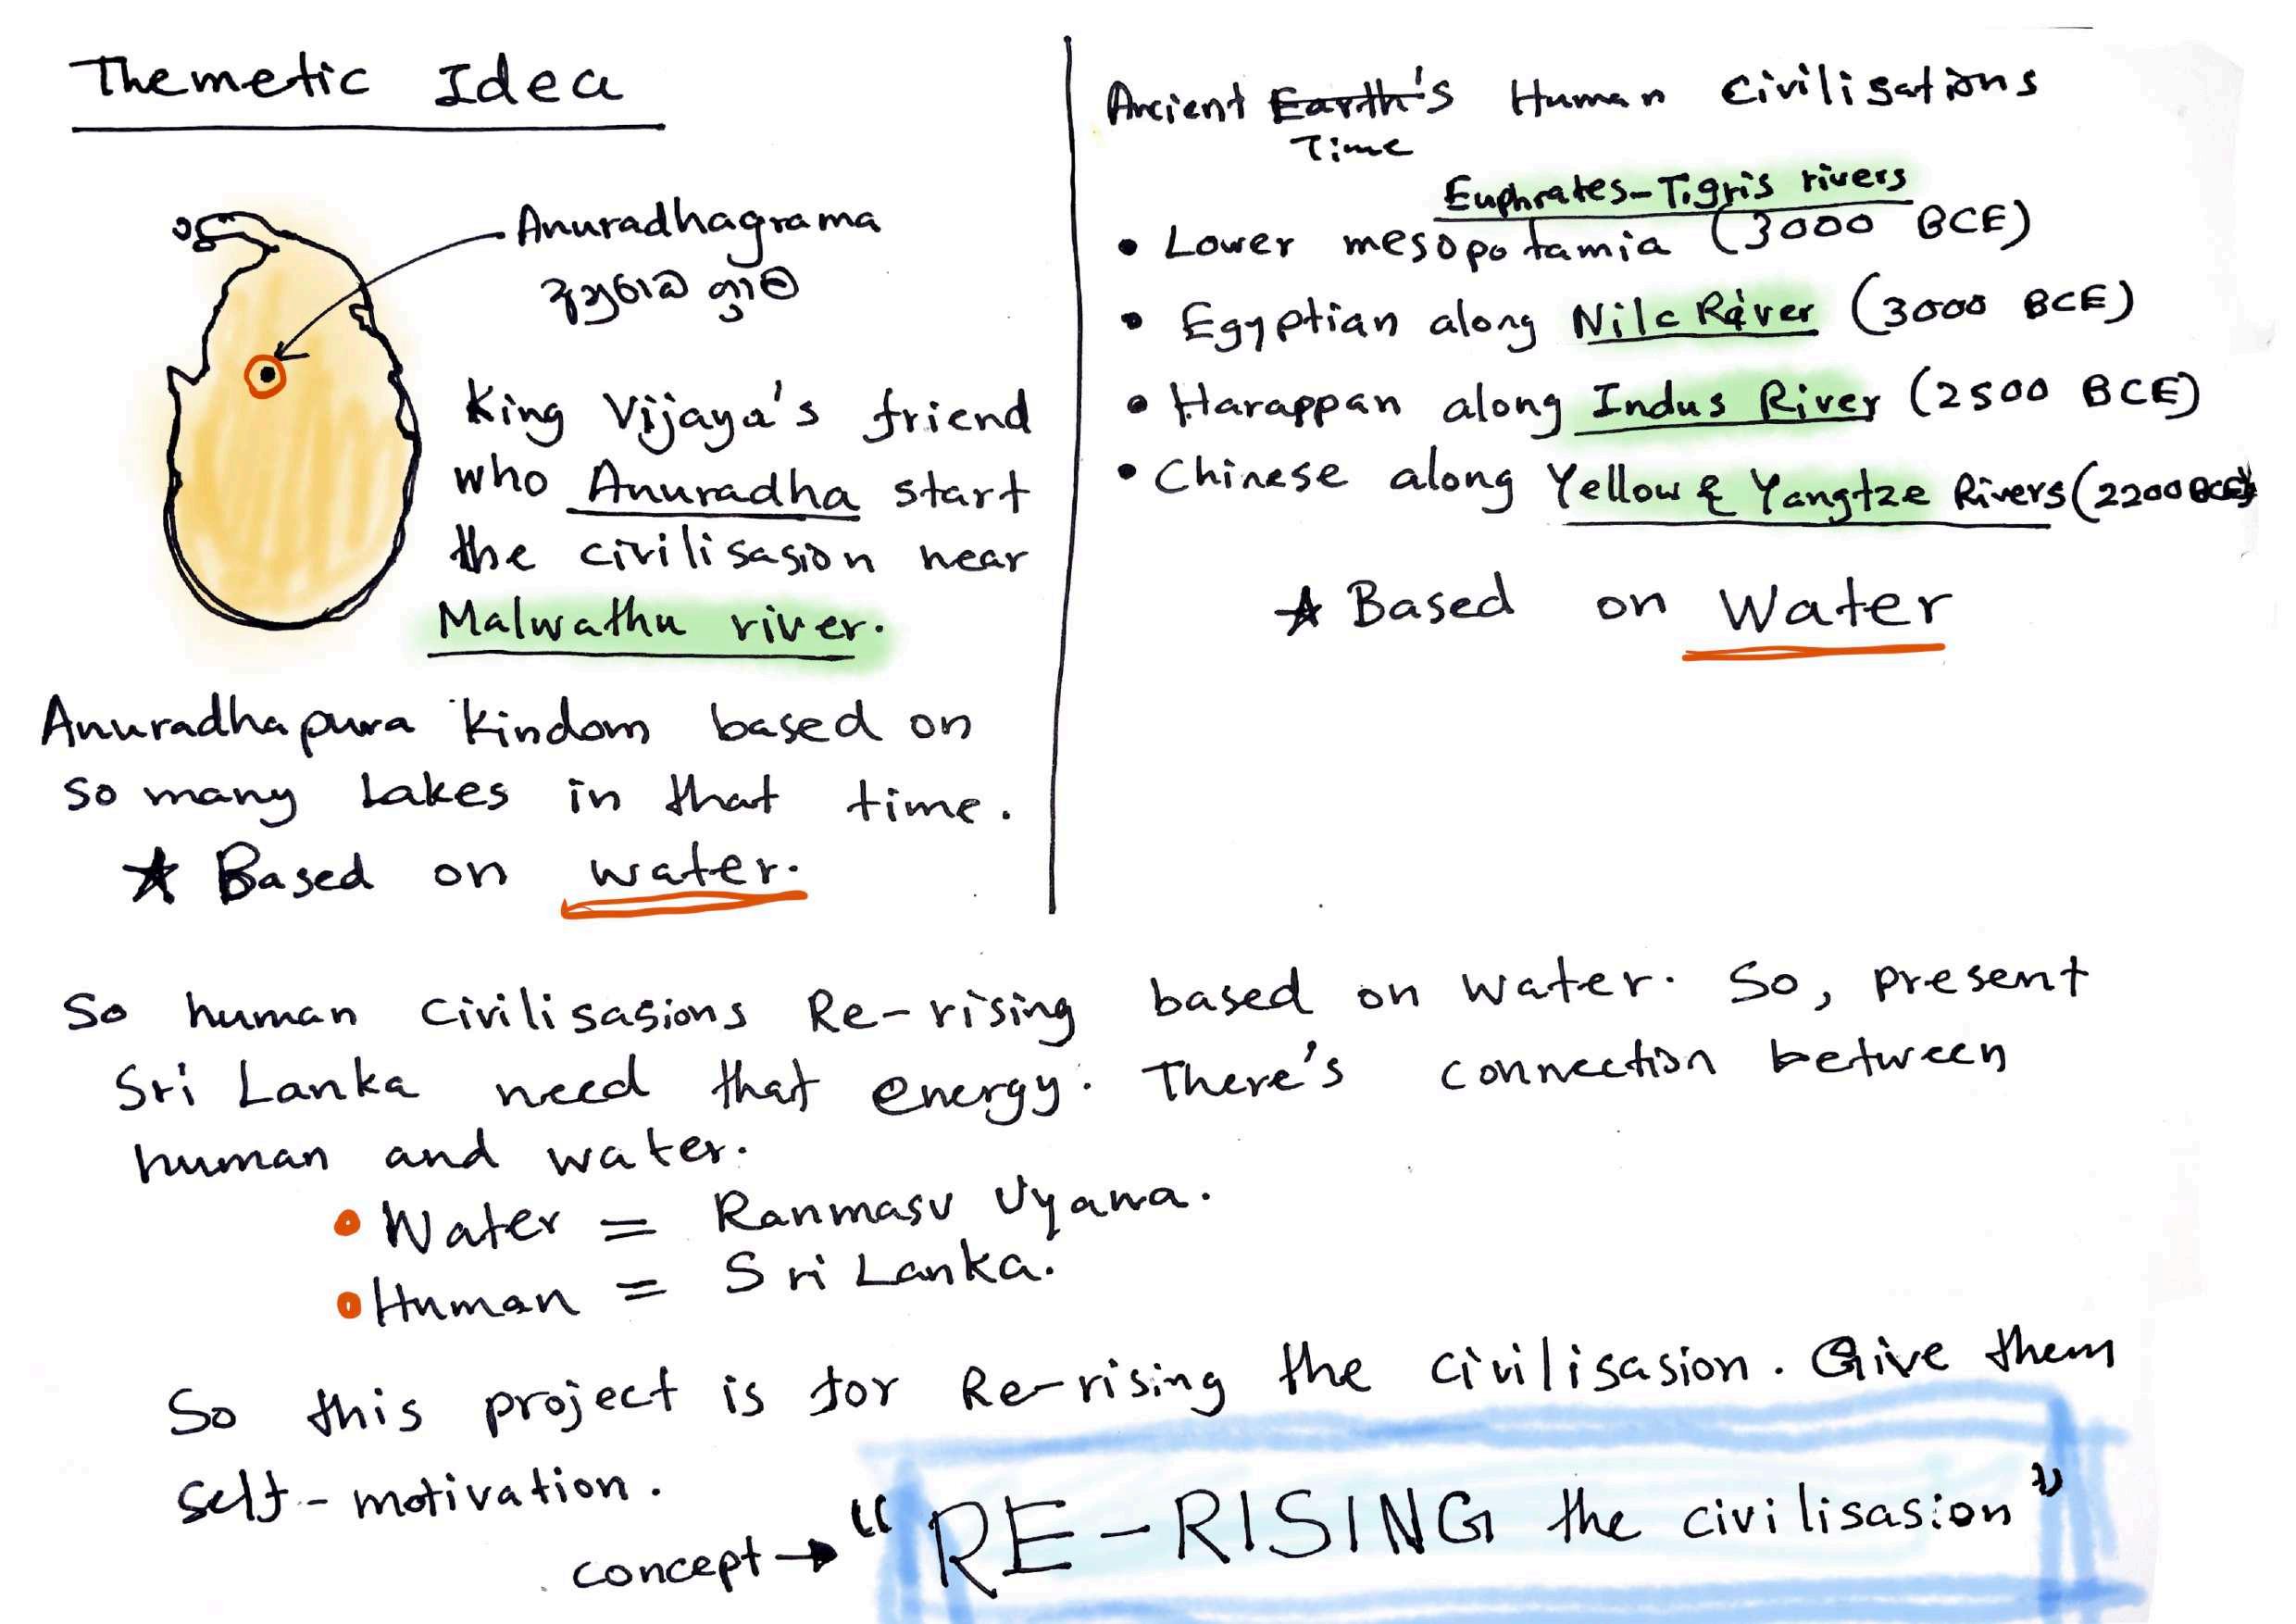 Themetic Idea
Anuradhagrama
අනුරාධ ග්‍රාම
King Vijaya's friend
who Anuradha start
the civilisasion near
Malwathu river.
Anuradhapura kindom based on
so many Lakes in that time.
★ Based on water.
Ancient Earth's Human Civilisations
Time
Euphrates-Tigris rivers
• Lower mesopotamia (3000 BCE)
• Egyptian along Nile River (3000 BCE)
• Harappan along Indus River (2500 BCE)
• Chinese along Yellow & Yangtze Rivers (2200 BCE)
★ Based on Water
So human civilisasions Re-rising based on water. So, present
Sri Lanka need that energy. There's connection between
human and water.
• Water = Ranmasu Uyana.
• Human = Sri Lanka.
So this project is for Re-rising the civilisasion. Give them
self-motivation.
concept → "RE-RISING the civilisasion"